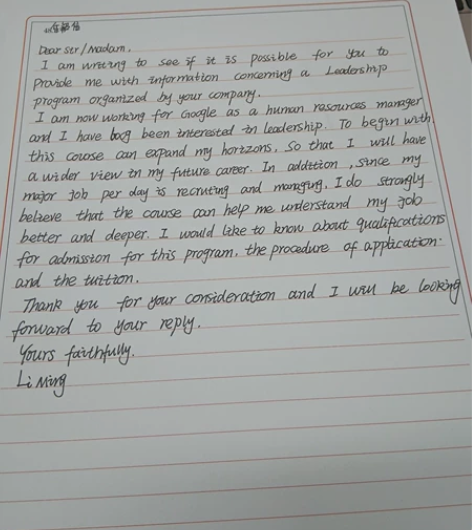 Dear Sir/Madam,
I am writing to see if it is possible for you to
provide me with information concerning a Leadership
program organized by your company.
I am now working for Google as a human resources manager
and I have long been interested in leadership. To begin with
this course can expand my horizons, so that I will have
a wider view in my future career. In addition, since my
major job per day is recruting and managing, I do strongly
believe that the course can help me understand my job
better and deeper. I would like to know about qualifications
for admission for this program, the procedure of application
and the tuition.
Thank you for your consideration and I will be looking
forward to your reply.
Yours faithfully.
Li Ming